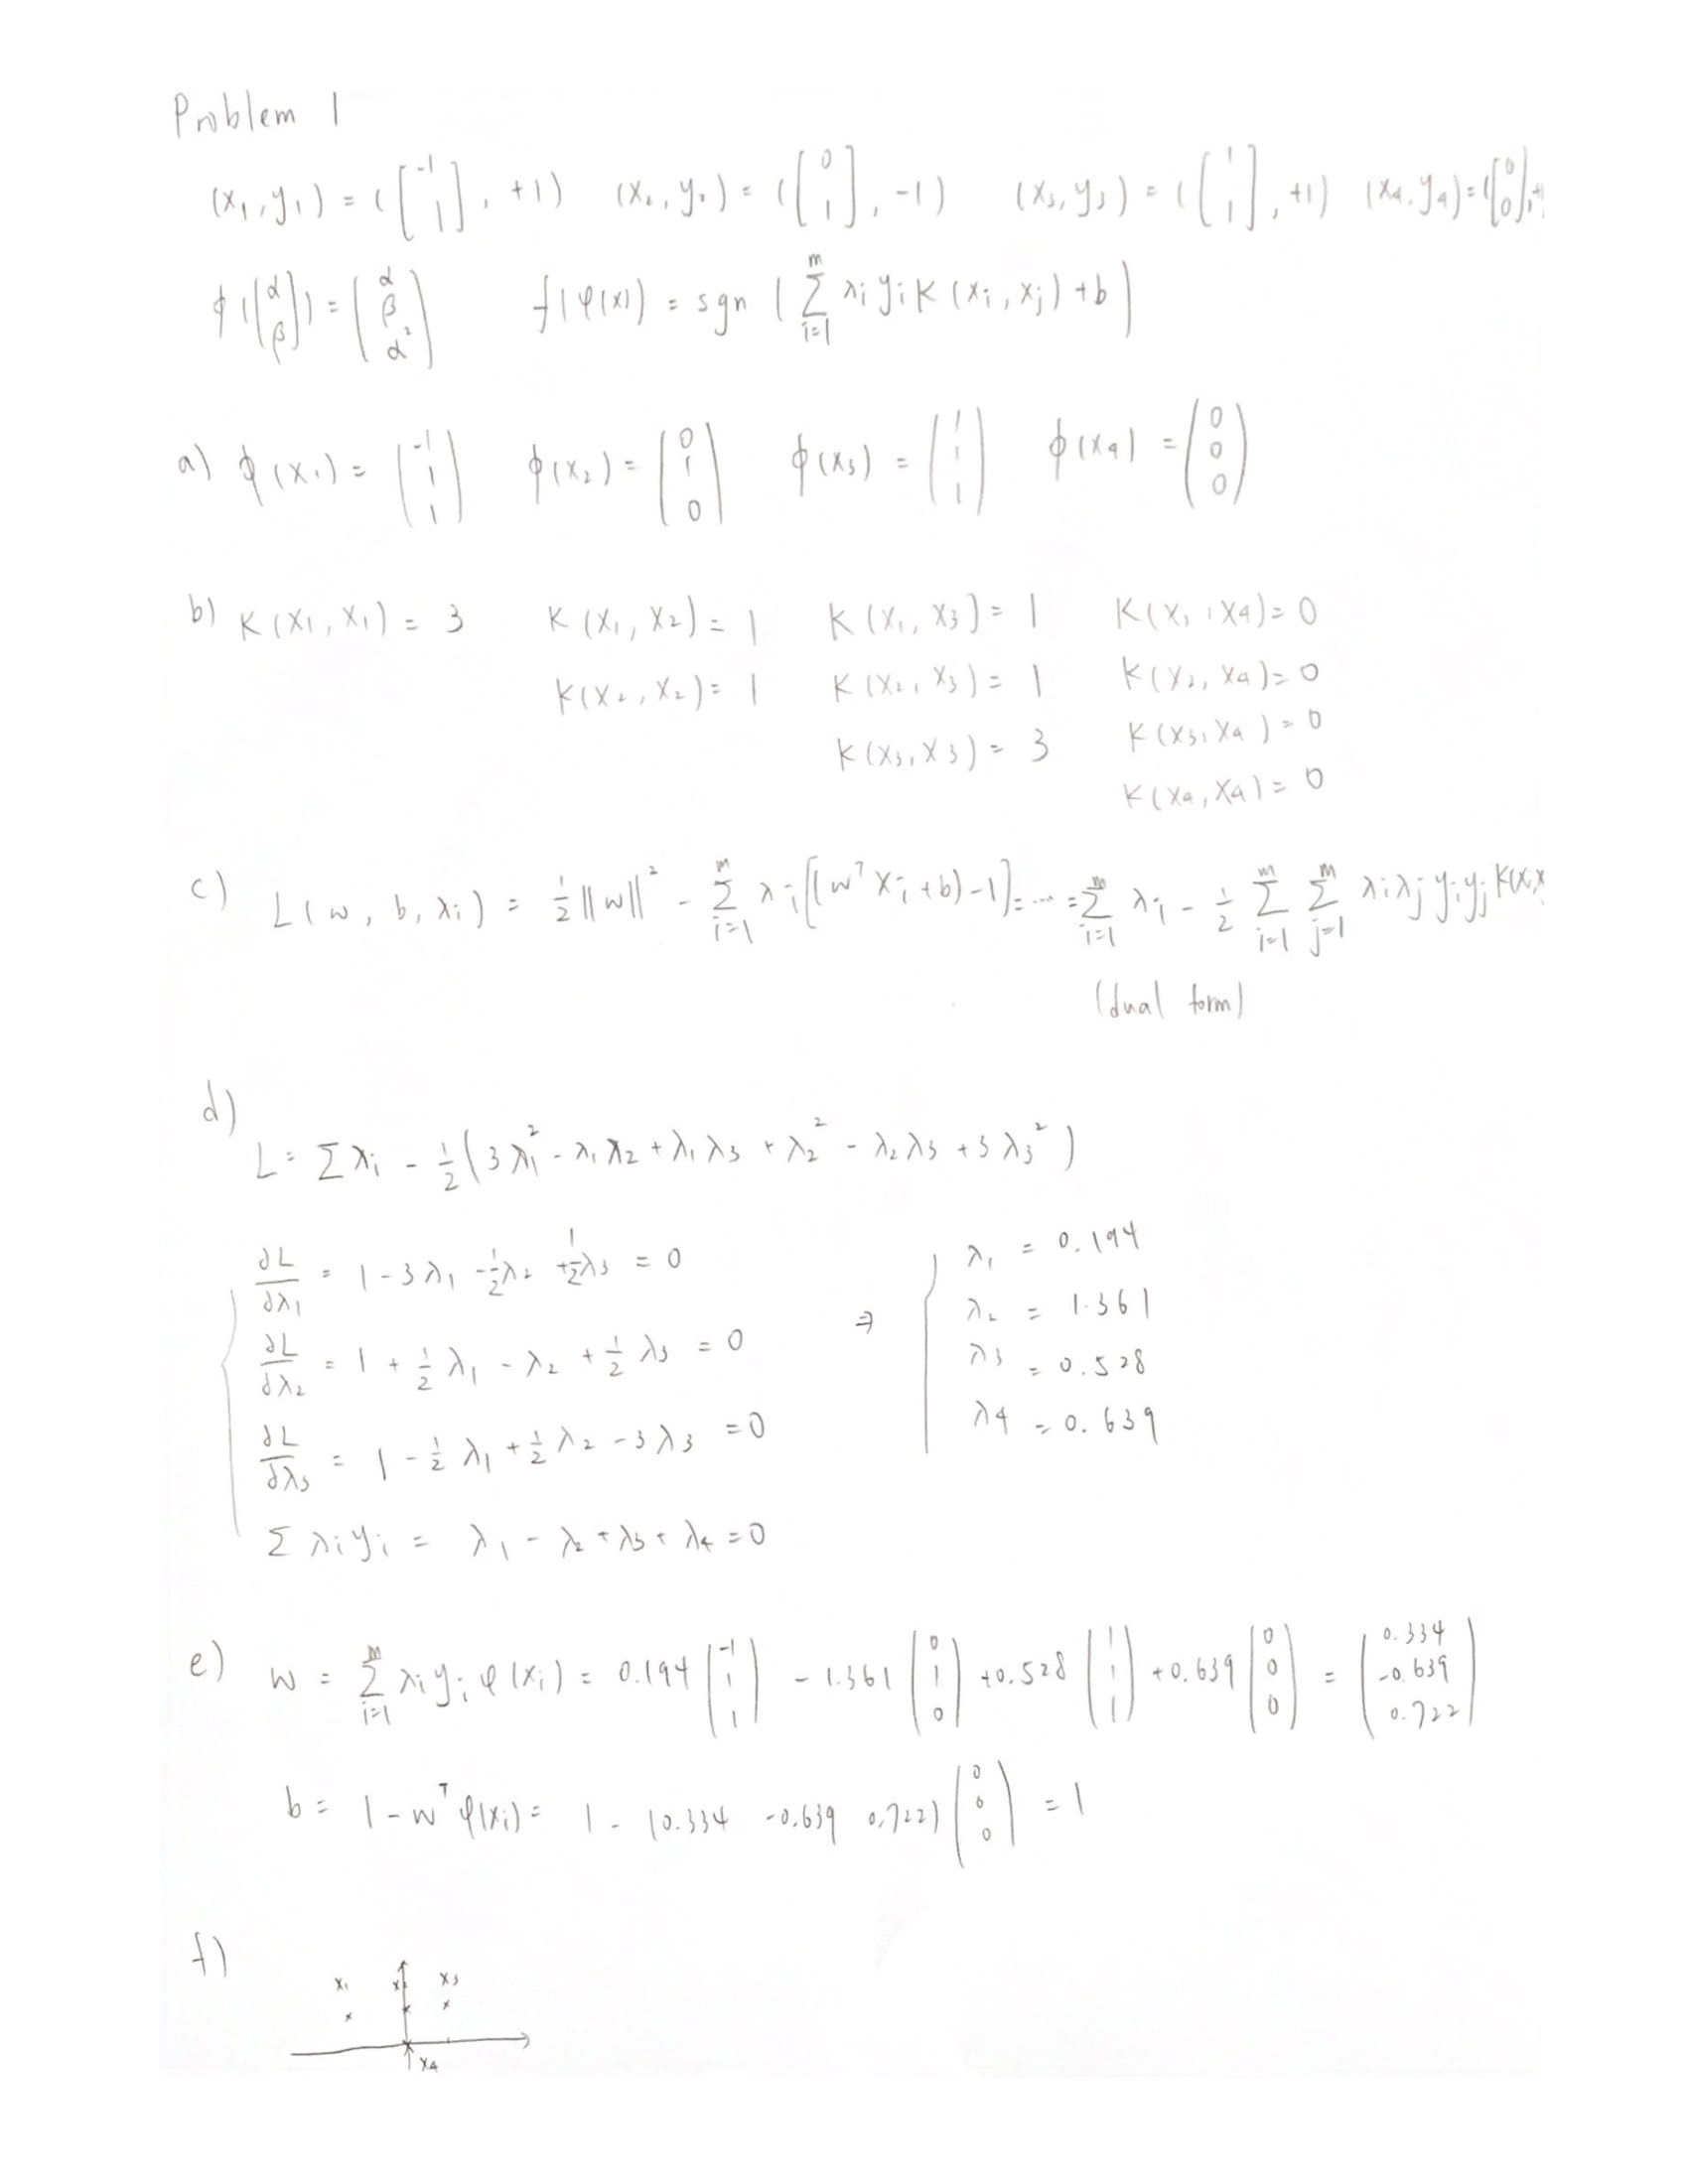 Problem 1
(x₁, y₁) = ([-1 1], +1) (x₂, y₂) = ([0 1], -1) (x₃, y₃) = ([1 1], +1) (x₄, y₄) = ([0 0], +
ϕ([α β]) = (α β α²) f(φ(x)) = sgn (∑_{i=1}^{m} λi yi K(xi, xj) + b)
a) ϕ(x₁) = (-1 1 1) ϕ(x₂) = (0 1 0) ϕ(x₃) = (1 1 1) ϕ(x₄) = (0 0 0)
b) K(x₁, x₁) = 3 K(x₁, x₂) = 1 K(x₁, x₃) = 1 K(x₁, x₄) = 0
K(x₂, x₂) = 1 K(x₂, x₃) = 1 K(x₂, x₄) = 0
K(x₃, x₃) = 3 K(x₃, x₄) = 0
K(x₄, x₄) = 0
c) L(w, b, λi) = ½‖w‖² - ∑_{i=1}^{m} λi[(wᵀxi + b) - 1] = ... = ∑_{i=1}^{m} λi - ½ ∑_{i=1}^{m} ∑_{j=1}^{m} λiλj yiyj K(x,x
(dual form)
d)
L = ∑λi - ½(3λ₁² - λ₁λ₂ + λ₁λ₃ + λ₂² - λ₂λ₃ + 3λ₃²)
∂L/∂λ₁ = 1 - 3λ₁ - ½λ₂ + ½λ₃ = 0 ⇒ λ₁ = 0.194
∂L/∂λ₂ = 1 + ½λ₁ - λ₂ + ½λ₃ = 0 λ₂ = 1.361
λ₃ = 0.528
∂L/∂λ₃ = 1 - ½λ₁ + ½λ₂ - 3λ₃ = 0 λ₄ = 0.639
∑λiyi = λ₁ - λ₂ + λ₃ + λ₄ = 0
e) w = ∑_{i=1}^{m} λi yi φ(xi) = 0.194 (-1 1 1) - 1.361 (0 1 0) + 0.528 (1 1 1) + 0.639 (0 0 0) = (0.334 -0.639 0.722)
b = 1 - wᵀφ(xi) = 1 - (0.334 -0.639 0.722) (0 0 0) = 1
f)
x₁ x₃
x₄